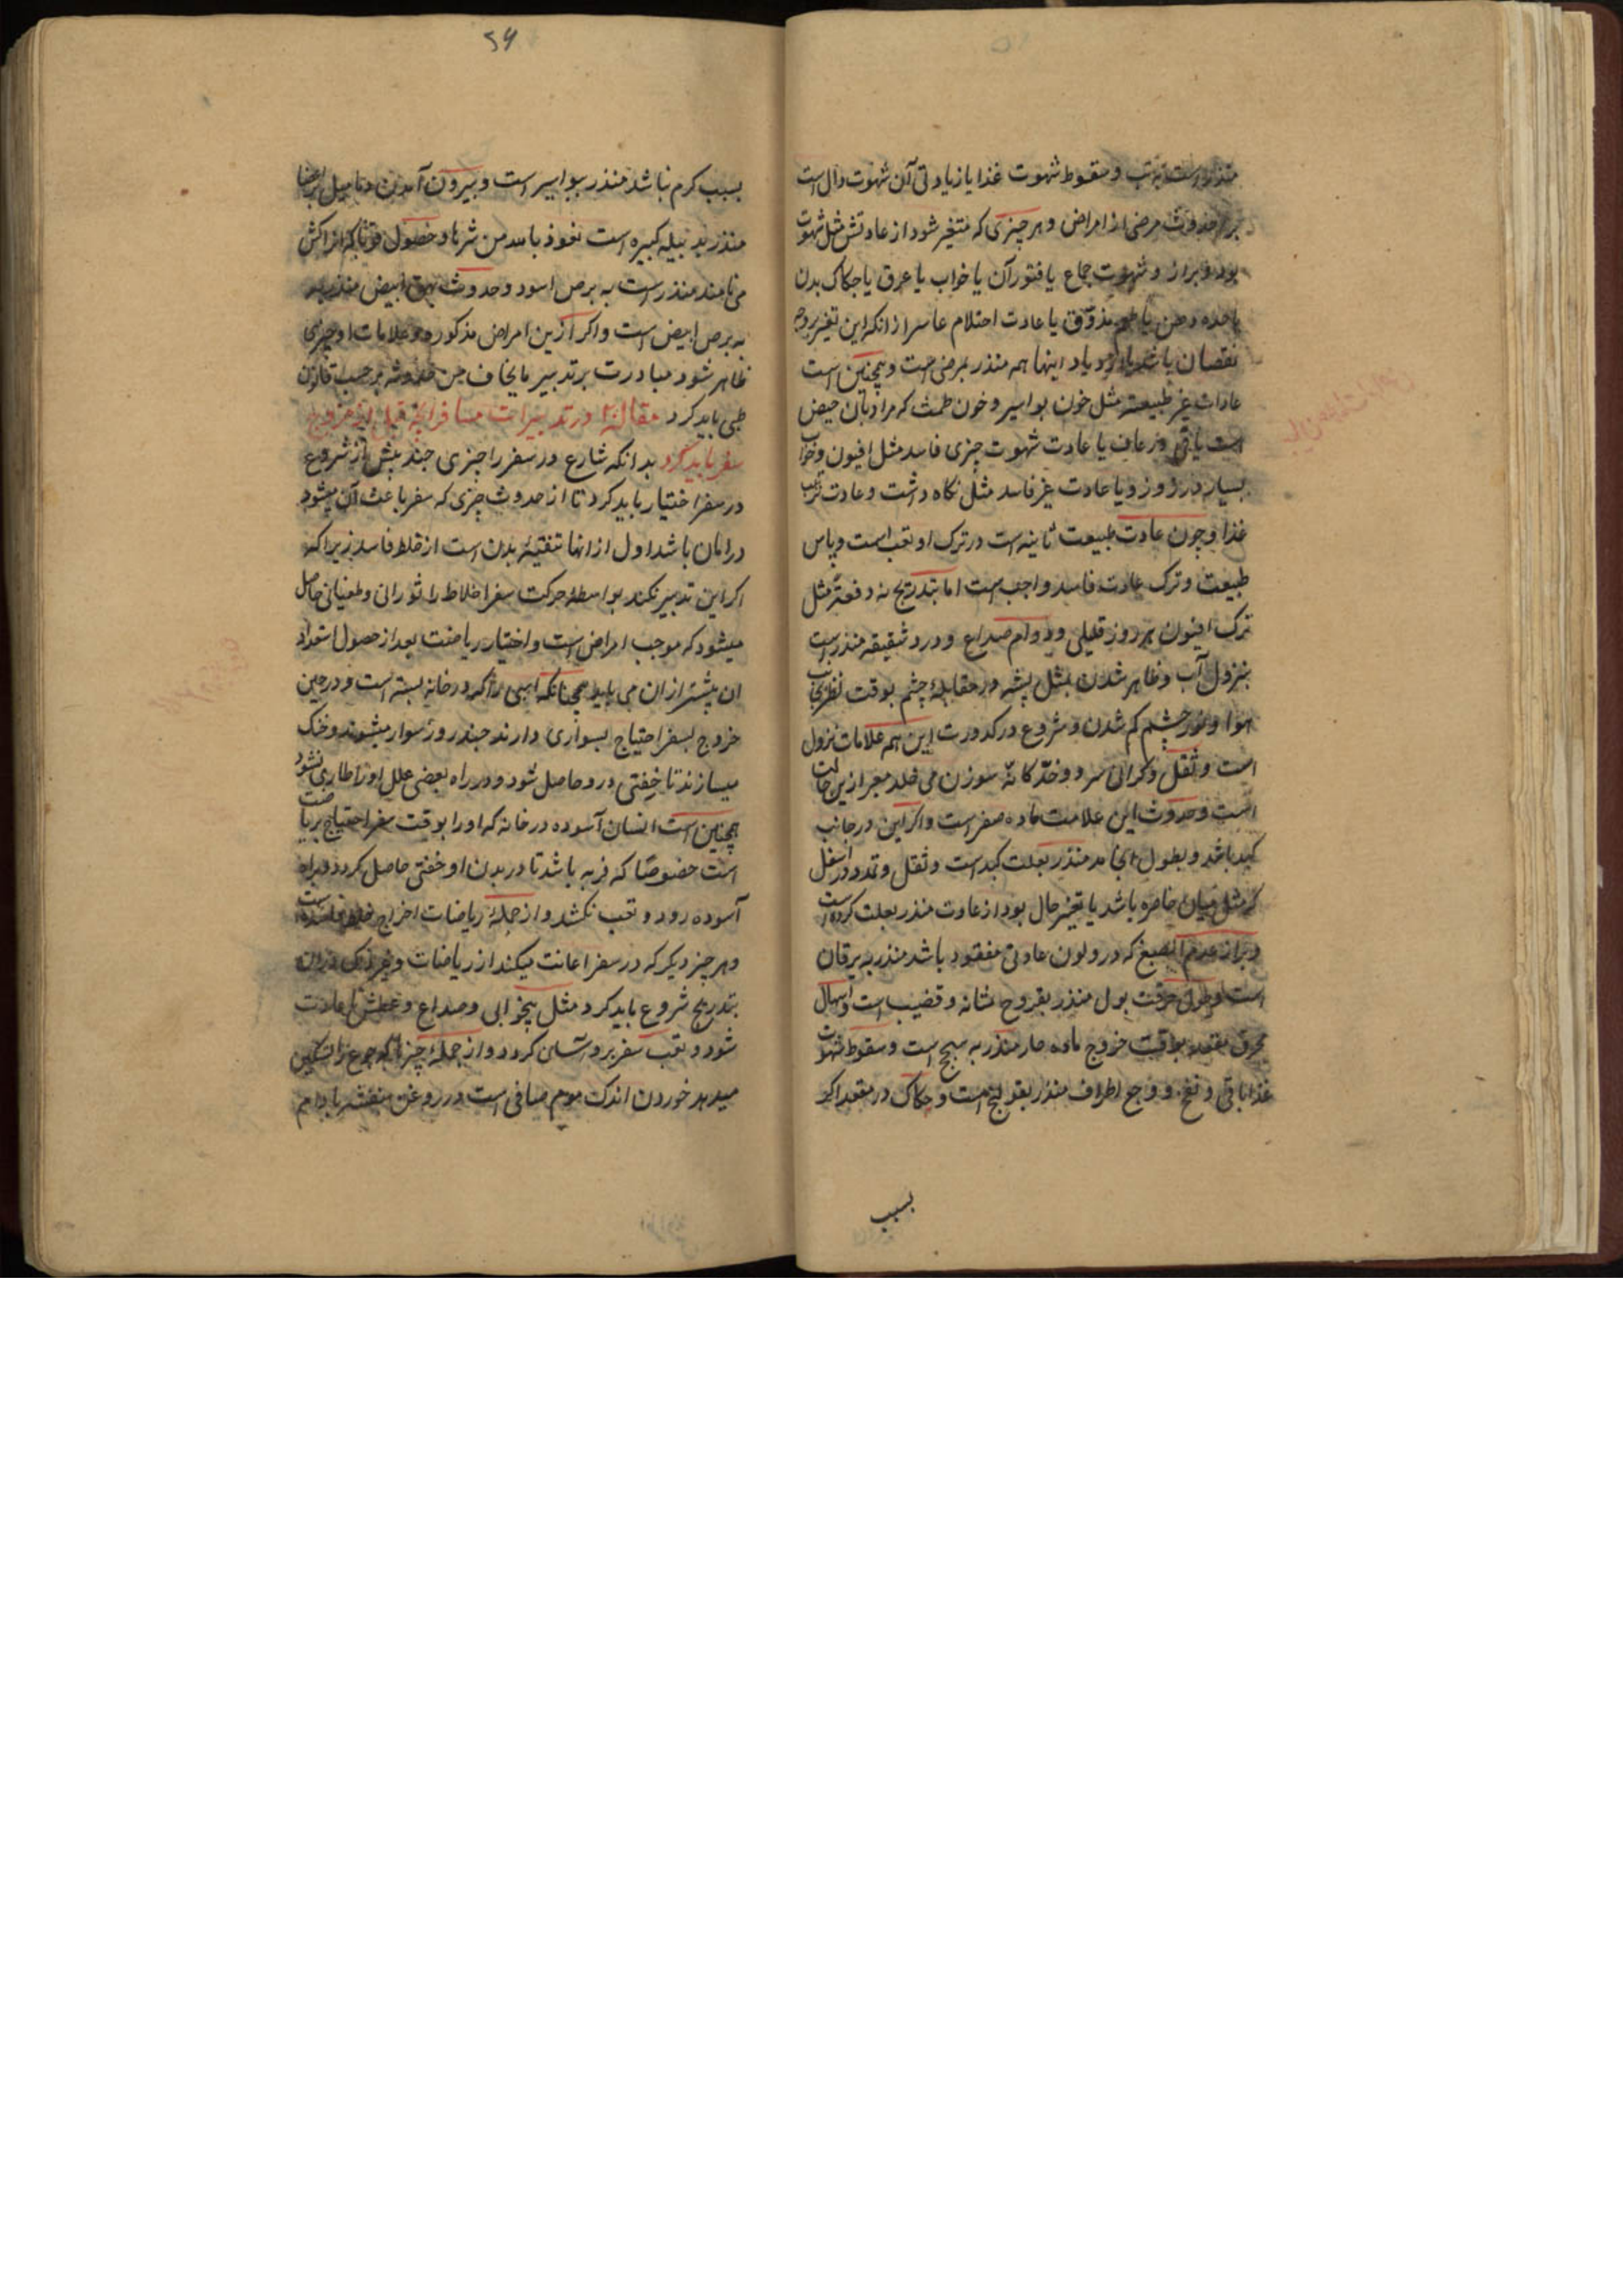 منذر است به تب و سقوط شهوت غذا یا زیادتی آن شهوت دال است
بر حدوث مرضی از امراض و هر چیزی که متغیر شود از عادتش مثل شهوت
بول و براز و شهوت جماع یا فتور آن یا خواب یا عرق یا حکاک بدن
یا عادت احتلام عام از انکه این تغیر بروجه
نقصان باشد یا ازدیاد اینها هم منذر بمرضی است و همچنین است
عادات غیر طبیعیه مثل خون بواسیر و خون طمث که مراد بآن حیض
است یا قی و رعاف یا عادت شهوت چیزی فاسد مثل افیون و خواب
بسیار در روز و یا عادت غیر فاسد مثل نکاه داشت و عادت ترتیب
غذا و چون عادت طبیعت ثانیه است در ترک او تعب است و پاس
طبیعت و ترک عادت فاسد واجب است اما بتدریج نه دفعةً مثل
ترک افیون هر روز قلیلی و دوام صداع و درد شقیقه منذر است
بنزول آب و ظاهر شدن مثل پشه در مقابلهٔ چشم بوقت نظر بجانب
هوا و نور چشم کم شدن و شروع در کدورت این همه علامات نزول
است و ثقل و کرانی سر د وخز کانه سوزن می خلد معبر ازین حالت
است و حدوث این علامت ماده صفر است و اگر این در جانب
کبد باشد و بطول انجامد منذر بعلت کبد است و ثقل و تمدد در اسفل
کمر مثل میان خاصره باشد یا تغیر حال بول از عادت منذر بعلت کرده است
و براز عدیم الصبغ که درو لون عادتی مفقود باشد منذر به یرقان
است و طول حرقت بول منذر بقروح مثانه و قضیب است و اسهال
محرق مقعد بوقت خروج ماده حار منذر به سحج است و سقوط شهوت
غذا با قی و نفخ و وجع اطراف منذر بقولنج است و حکاک در مقعد اکر
بسبب
۵۶
بسبب کرم نباشد منذر ببواسیر است و بیرون آمدن دمامیل بر اعضا
منذر بد بیله کبیره است نعوذ بالله من شرها و حصول قوبا که اراکش
می نامند منذر است به برص اسود و حدوث بهق ابیض منذر به
به برص ابیض است و اکر ازین امراض مذکوره و علامات او چیزی
ظاهر شود مبادرت بر تدبیر ما یخاف من حدوثه بر حسب قانون
طبی باید کرد مقاله در تدبیرات مسافر انچه قبل از خروج
سفر باید کرد بدانکه شارع در سفر را چیزی چند پیش از شروع
در سفر اختیار باید کرد تا از حدوث چیزی که سفر باعث آن میشود
در امان باشد اول ازانها تنقیهٔ بدن است از خلط فاسد زیرا که
اکر این تدبیر نکند بواسطهٔ حرکت سفر اخلاط را ثوران و طغیانی حاصل
میشود که موجب امراض است و اختیار ریاضت بعد از حصول استعداد
ان پیشتر ازان می باید همچنانکه اسپی را که در خانه بسته است و در حین
خروج بسفر احتیاج بسواری دارند چند روز سوار میشوند و خنک
میسازند تا خفتی درو حاصل شود و در راه بعضی علل او را طاری نشود
همچنین است انسان آسوده در خانه که او را بوقت سفر احتیاج بریاضت
است خصوصًا که فربه باشد تا در بدن او خفتی حاصل کردد و براه
آسوده رود و تعب نکشد و از جملهٔ ریاضات اخراج خلط فاسد است
و هر چیز دیکر که در سفر اعانت میکند از ریاضات و غیر ذلک دران
بتدریج شروع باید کرد مثل بیخوابی و صداع و عطش تا عادت
شود و تعب سفر برو آسان کردد و از جملهٔ چیزها که جوع را تسکین
میدهد خوردن اندک موم صافی است در روغن بنفشه بادام